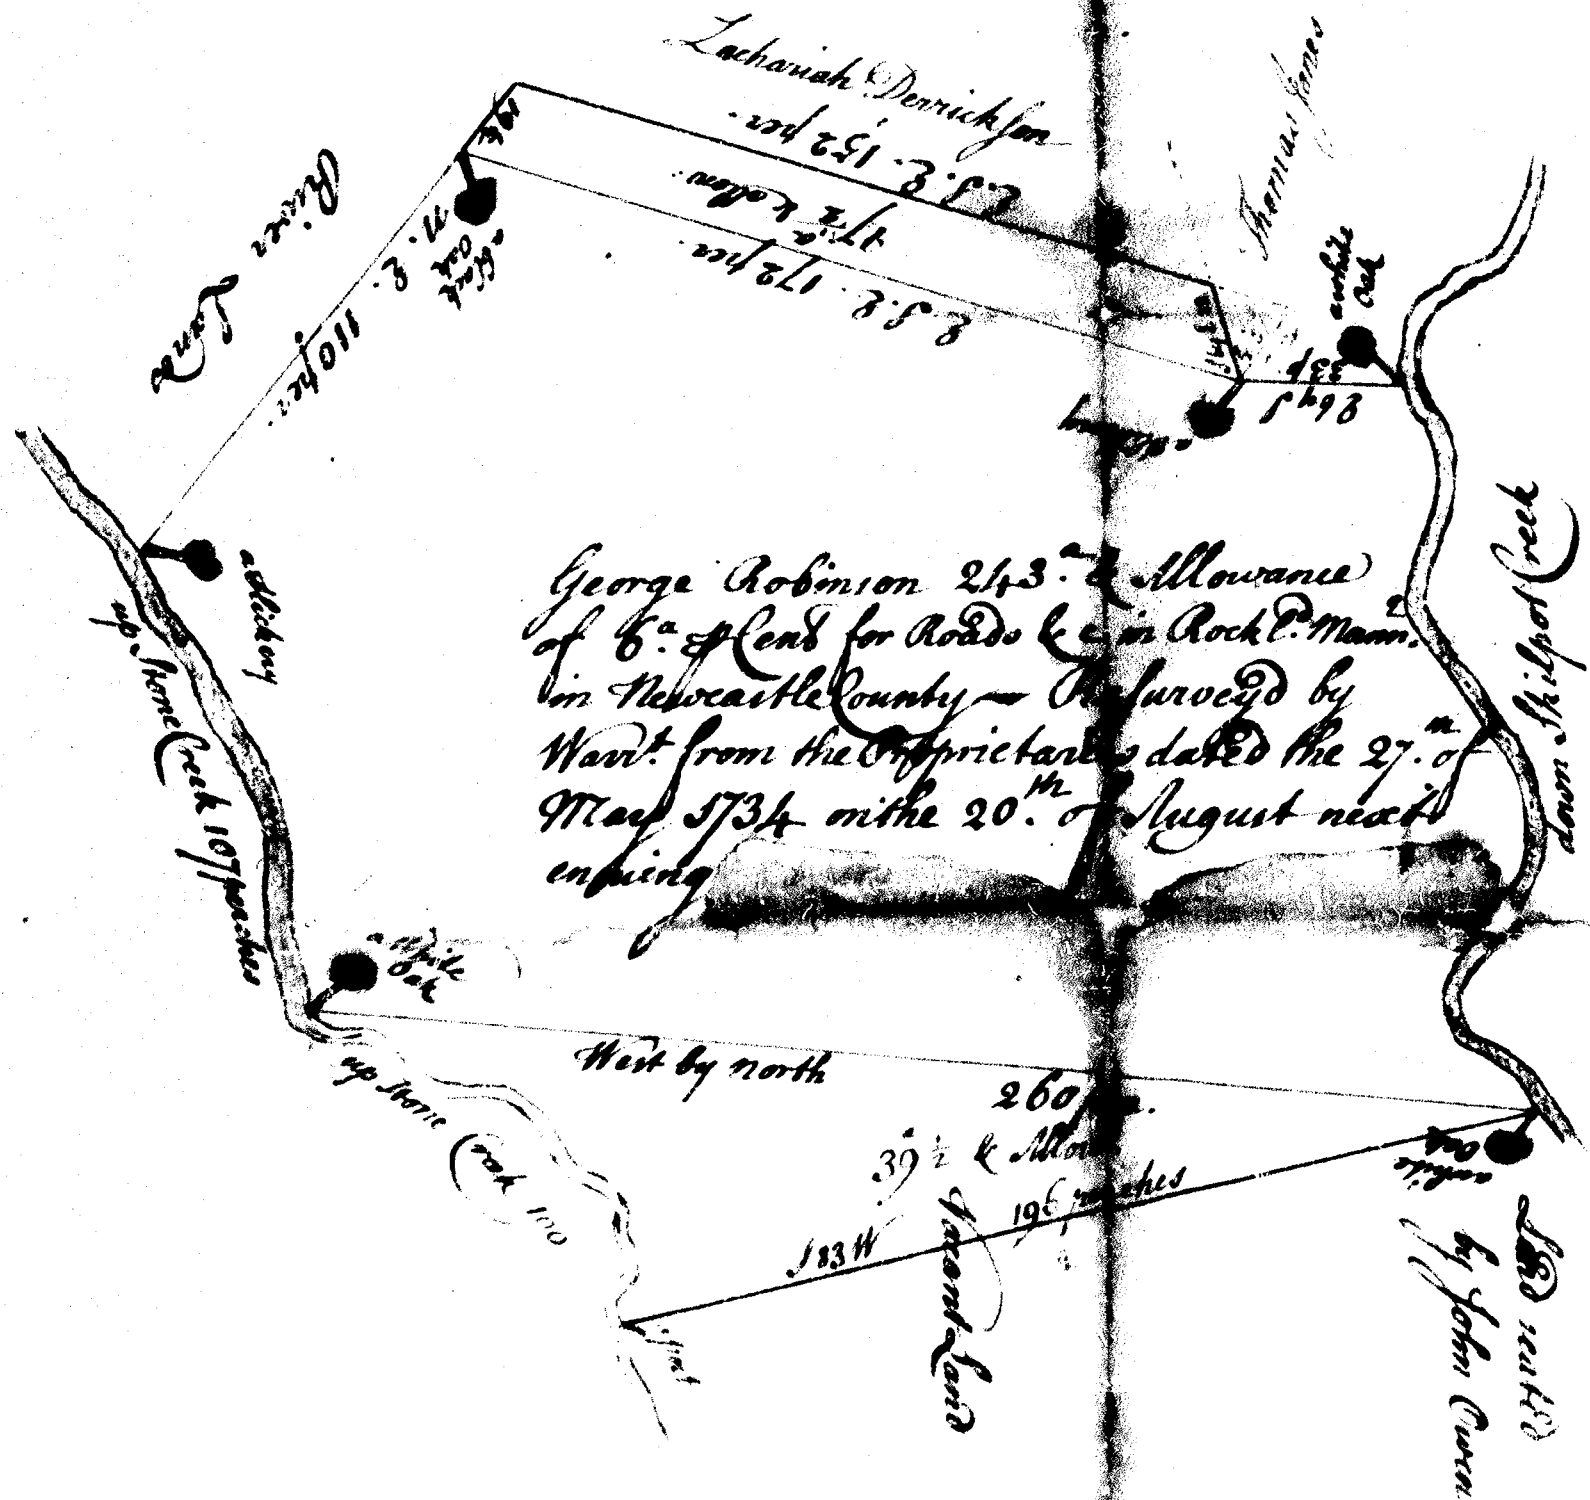 Zachariah Derrickson
Thomas Jones
E.S.E. 152 per.
17½ a & allow.
E.S.E. 172 per.
19 p
a black
Oak
N. E.
110 per.
River Land
a white
Oak
33 p
E 6y S
a Hickory
a Hickory
up Stone Creek 107 perches
down Shilpot Creek
George Robinson 243.a & Allowance
of 6.a p Cent for Roads &c in Rock l.d Mann.r
in Newcastle County — Resurvey'd by
Warr.t from the Proprietaries dated the 27.th of
May 1734 on the 20.th of August next
ensuing
a White
Oak
West by north
260 per.
39 a ½ & Allow
S 83 W
196 perches
up Stone Creek 100
Vacant Land
a white
Oak
Land seated
by John Owen